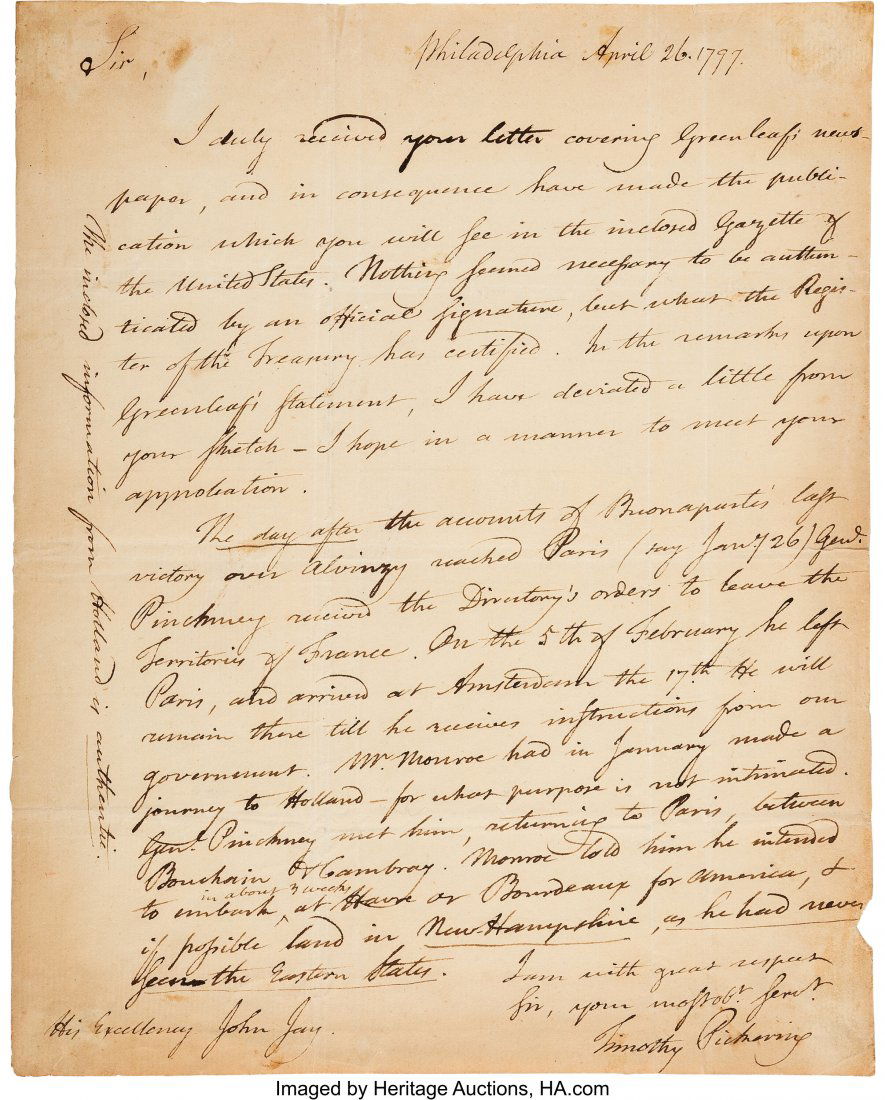 Philadelphia April 26. 1797.
Sir,
I duly received your letter covering Greenleaf's news-
paper, and in consequence have made the publi-
cation which you will see in the inclosed Gazette of
the United States. Nothing seemed necessary to be authen-
ticated by an official signature, but what the Regis-
ter of the Treasury has certified. In the remarks upon
Greenleaf's statement, I have deviated a little from
your sketch - I hope in a manner to meet your
approbation.
The day after the accounts of Buonaparte's last
victory over Alvinzy reached Paris (say Jany 26) Genl.
Pinckney received the Directory's orders to leave the
Territories of France. On the 5th of February he left
Paris, and arrived at Amsterdam the 17th. He will
remain there till he receives instructions from our
government. Mr. Monroe had in January made a
journey to Holland - for what purpose is not intimated.
Genl. Pinckney met him, returning to Paris, between
Bouchain & Cambray. Monroe told him he intended
in about 3 weeks
to embark ^ at Havre or Bourdeaux for America, &
if possible land in New-Hampshire, as he had never
seen the Eastern States.
I am with great respect
Sir, your most obt. servt.
Timothy Pickering
His Excellency John Jay.
The inclosed information from Holland is authentic.
Imaged by Heritage Auctions, HA.com